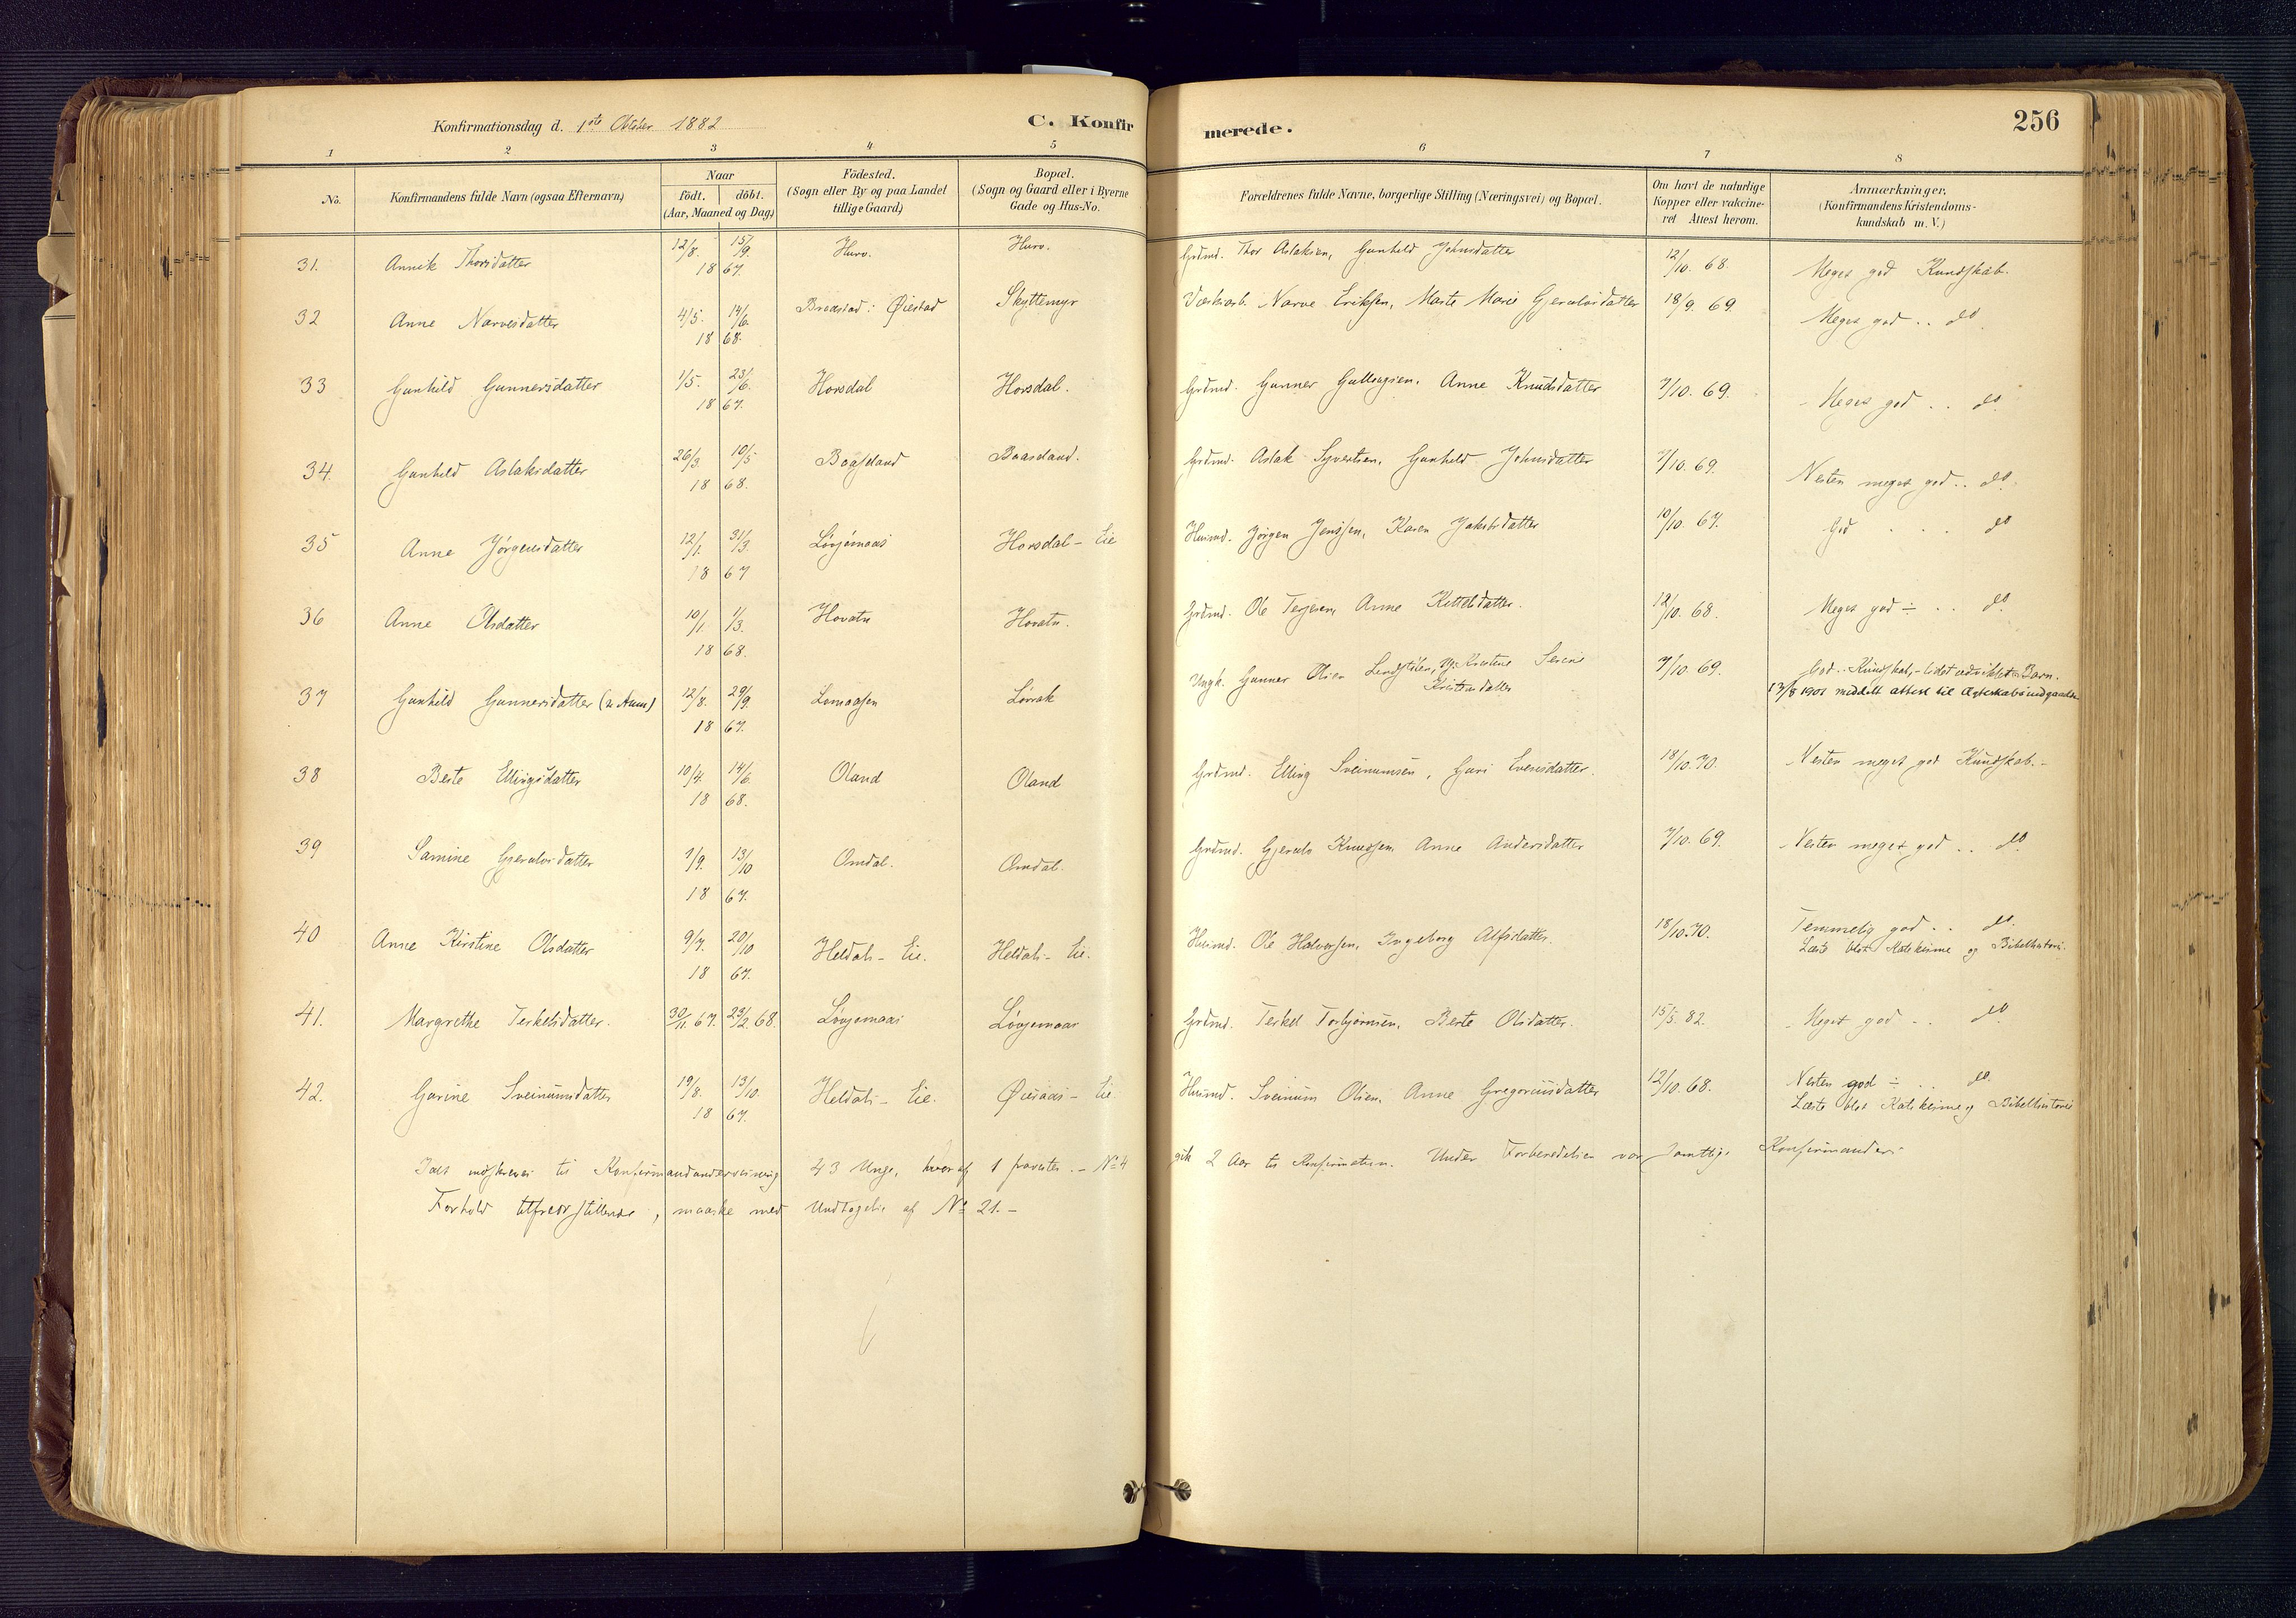 Konfirmationsdag d. 1ste Oktober 1882
C. Konfirmerede.
256
1 2 3 4 5 6 7 8
No. Konfirmandens fulde Navn (ogsaa Efternavn) Naar födt. döbt. (Aar, Maaned og Dag) Födested. (Sogn eller By og paa Landet tillige Gaard) Bopæl. (Sogn og Gaard eller i Byerne Gade og Hus-No. Forældrenes fulde Navne, borgerlige Stilling (Næringsvei) og Bopæl. Om havt de naturlige Kopper eller vakcineret Attest herom. Anmærkninger, (Konfirmandens Kristendomskundskab m. V.)
31. Annik Thorsdatter 12/8. 15/9. 1867. Hurv. Hurv. Grdmd. Thor Aslaksen, Gunhild Johnsdatter 12/10. 68. Meget god Kundskab.
32 Anne Narvesdatter 4/5. 14/6. 1868. Bredstad i Øiestad Skyttemyr Narve Eriksen, Marte Marie Gjeruldsdatter 18/9. 69. Meget god .. do.
33 Gunhild Gunnersdatter 1/5. 23/6. 1867. Horsdal Horsdal. Grdmd. Gunner Gullaagsen, Anne Knudsdatter 7/10. 69. Meget god .. do.
34. Gunhild Aslaksdatter 26/3. 10/5 1868. Baaseland Baaseland. Grdmd. Aslak Syvertsen, Gunhild Johnsdatter 7/10. 69. Nesten meget god .. do.
35 Anne Jørgensdatter 12/1. 31/3. 1867 Løvjomaas Horsdal - Eie Husmd. Jørgen Jenssen, Karen Jakobsdatter 10/10. 67. God . . do
36 Anne Olsdatter 10/1. 1/3. 1868. Hovatn Hovatn. Grdmd. Ole Terjesen, Anne Kittelsdatter. 12/10. 68. Meget god ÷ .. do.
37 Gunhild Gunnersdatter 12/8. 29/9. 1867. Lomaasen Løvrak Ungk. Gunner Olsen Kirstine Serine Kristensdatter 7/10. 69. God Kundskab, - lidet udviklet Barn.
13/8 1901 meddelt attest til Ægteskabs indgaaelse
38 Berte Ellingsdatter 10/4. 14/6. 1868. Oland Oland Grdmd. Elling Sveinumsen, Guri Evensdatter. 18/10. 70. Nesten meget god Kundskab. -
39 Samine Gjeruldsdatter 1/9. 13/10 1867. Omdal. Omdal. Grdmd. Gjeruld Knudsen, Anne Andersdatter 7/10. 69. Nesten meget god .. do.
40 Anne Kirstine Olsdatter 9/7. 20/10 1867. Heldal - Eie. Heldal - Eie. Husmd. Ole Halvorsen, Ingeborg Alfsdatter. 18/10. 70. Temmelig god .. do.
Læste blot Katekisme og Bibelhistorie.
41. Margrethe Terkelsdatter. 30/11. 67. 29/2. 68. Løvjomaas Løvjomaas Grdmd. Terkel Torbjørnsen, Berte Olsdatter. 15/5. 82. Meget god .. do.
42. Gurine Sveinumsdatter 19/8. 13/10. 1867. Heldal - Eie. Øiesaas - Eie Husmd. Sveinum Olsen, Anne Gregoriusdatter 12/10. 68. Nesten god ÷ .. do.
Læste blot Katekisme og Bibelhistorie
Ialt indskreves til Konfirmandundervisning 43 Unge, hvoraf 1 fravistes. - No 4 gik 2 Aar til Konfirmation. Under Forberedelsen var samtlige Konfirmanders
Forhold tilfredsstillende, maaske med Undtagelse af No 21. -